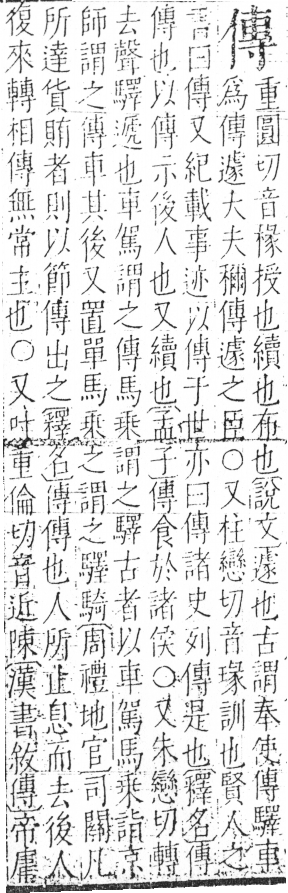 傳
重圓切音椽授也續也布也說文遽也古謂奉使傳驛車
爲傳遽大夫稱傳遽之臣○又柱戀切音瑑訓也賢人之
書曰傳又紀載事迹以傳于世亦曰傳諸史列傳是也釋名傳
傳也以傳示後人也又續也孟子傳食於諸侯○又朱戀切轉
去聲驛遞也車駕謂之傳馬乘謂之驛古者以車駕馬乘詣京
師謂之傳車其後又置單馬乘之謂之驛騎周禮地官司關凡
所達貨賄者則以節傳出之釋名傳傳也人所止息而去後人
復來轉相傳無常主也○又叶重倫切音近陳漢書敘傳帝庸